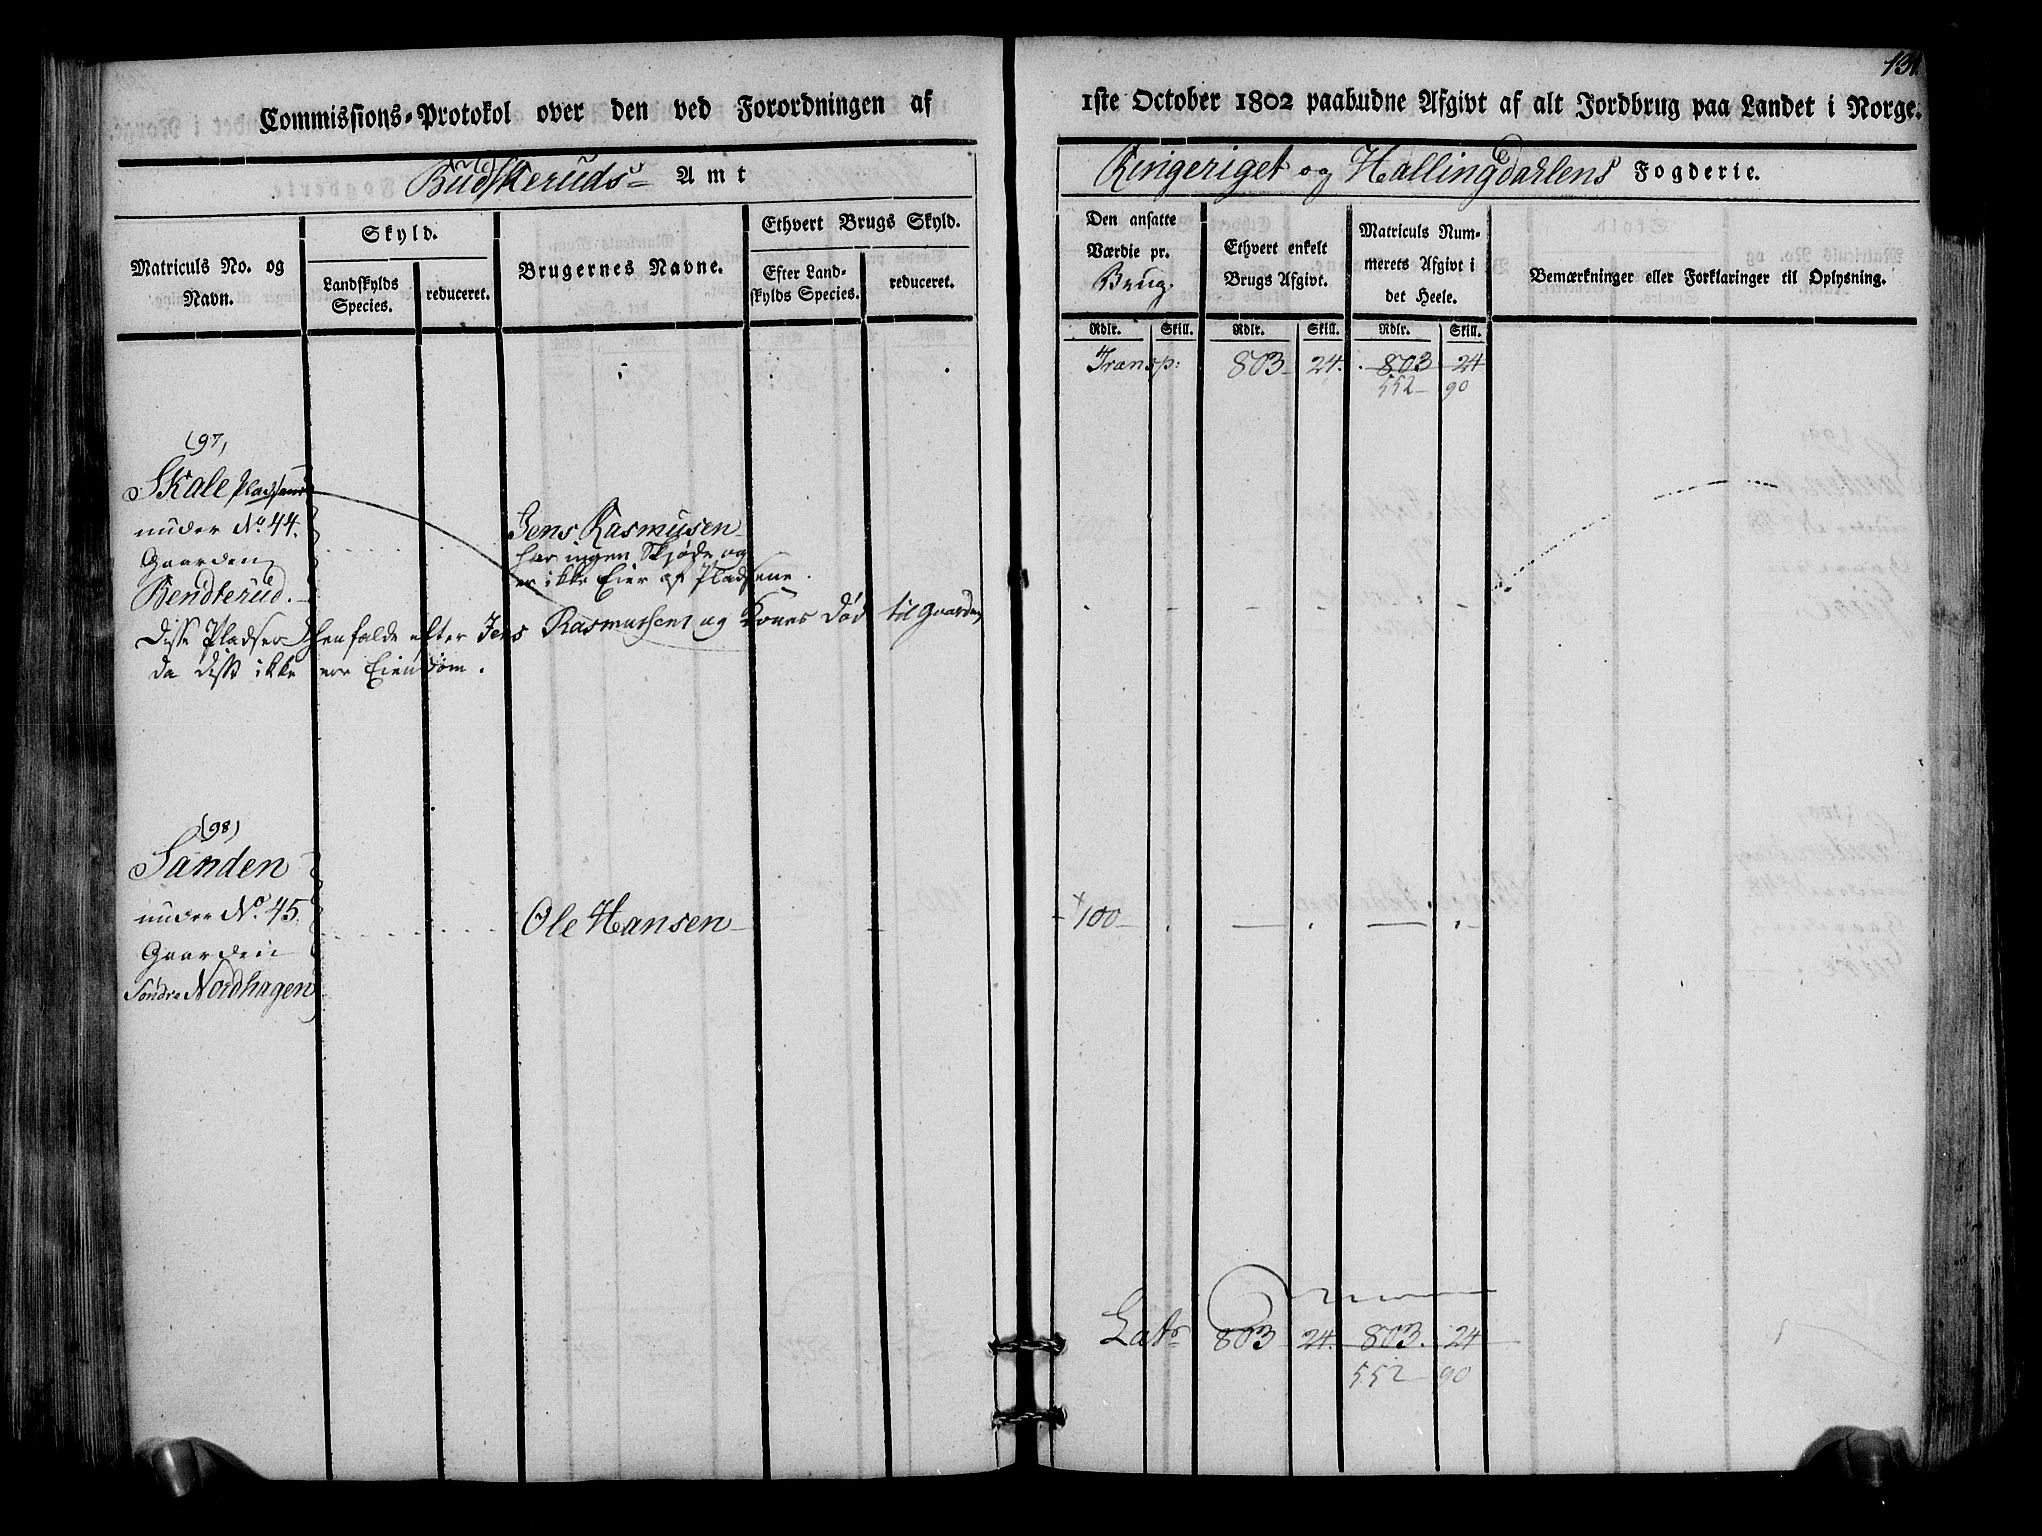 131
Commissions-Protokol over den ved Forordningen af 1ste October 1802 paabudne Afgivt af alt Jordbrug paa Landet i Norge.
Budskeruds Amt
Ringeriget og Hallingdalens Fogderie.
Matriculs No. og Navn.
Skyld.
Landskylds Species.
reduceret.
Brugernes Navne.
Ethvert Brugs Skyld.
Efter Landskylds Species.
reduceret.
Den ansatte Værdie pr. Brug.
Ethvert enkelt Brugs Afgivt.
Matriculs Nummerets Afgivt i det Heele.
Bemærkninger eller Forklaringer til Oplysning.
Rdlr. Skill. Rdlr. Skill. Rdlr. Skill.
Transp: 803 24. 803 24
552 90
(97)
Skale Pladsene
under No. 44.
Gaarden
Bendterud.
Jens Rasmusen
har ingen Skjøde og
er ikke Eier af Pladsene.
Disse Pladser henfalde efter Jens Rasmussens og Kones Død til Gaarden
da disse ikke er Eiendom.
(98)
Sanden
under No. 45.
Gaarden
Søndre Nordhagen
Ole Hansen
100
Latr 803 24. 803. 24
552 90